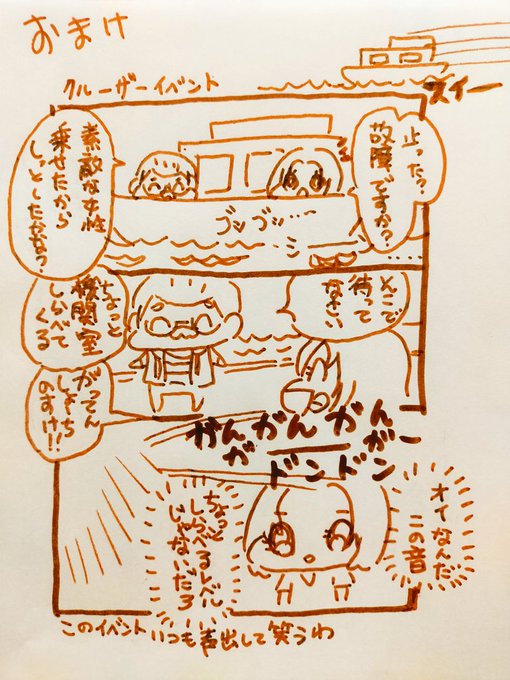 おまけ
クルーザーイベント
スイー
止った?
故障ですか?
素敵な女性
乗せたから
しっとしたかな?
ブンブン…
そこで
待って
なさい
ちょっと
機関室
しらべて
くる
がってん
しょうち
のすけ!!
がんがんがん
ガガー
ドンドン
オイなんだ
この音
ちょっと
しらべるレベル
じゃないだろ
このイベントいつも声出して笑うわ